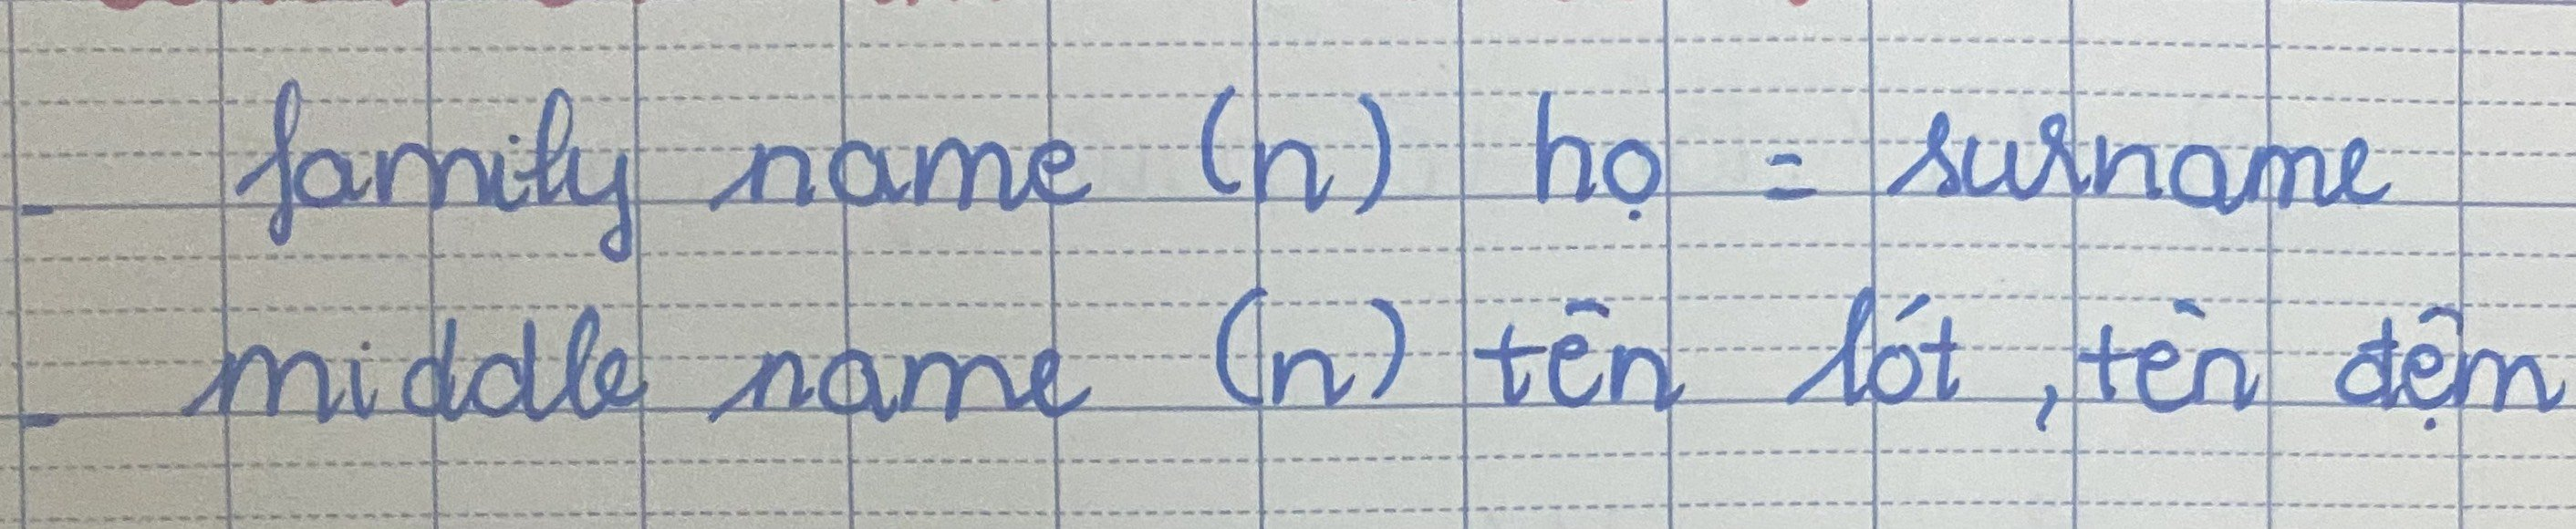 - family name (n) họ = surname
- middle name (n) tên lót , tên đệm